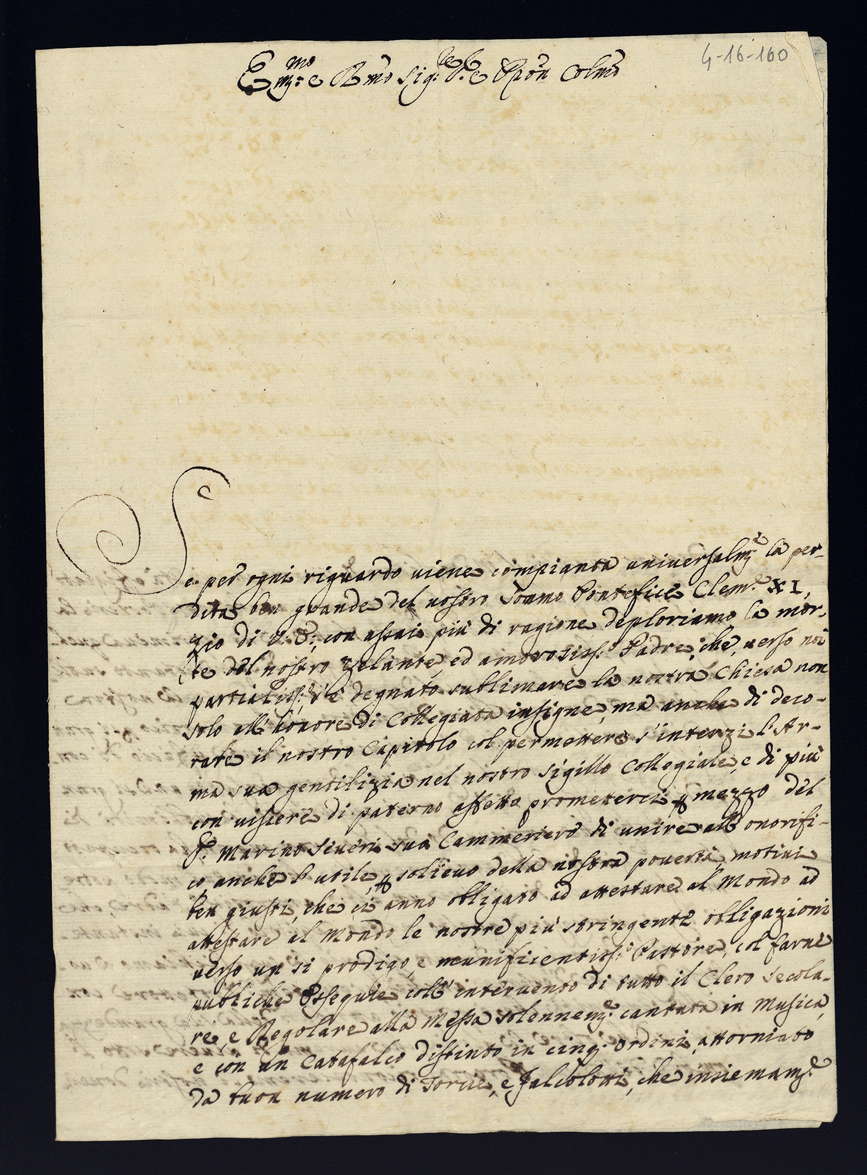 4-16-160
Em.mo e R.mo Sig.r P.re e P̃ron Colm̃o
Se per ogni riguardo viene compianta universalm.e la per-
dita ben grande del nostro Som̃o Pontefice Clem.e XI,
zio di V. E., con assai più di ragione deploriamo la mor-
te del nostro zelante, ed amorosiss.o Padre, che, verso noi
partialiss.o s'è degnato sublimare la nostra Chiesa non
solo all'honore di Collegiata insigne, ma anche di deco-
rare il nostro Capitolo col permettere s'intarzi l'Ar-
ma sua gentilizia nel nostro sigillo Collegiale, e di più
con viscere di paterno affetto prometterci p mezzo del
S.r Marino Severi suo Cammeriere di unire all'onorifi-
co, anche l'utile, p solievo della nostra povertà, motivi
ben giusti, che ci anno obligato ad attestare al Mondo ad
attestare al Mondo le nostre più stringenti obligazioni
verso un sì prodigo, e munificentiss.o Pastore, col farne
publiche Essequie coll'intervento di tutto il Clero Secola-
re, e Regolare alla Messa solennem.e cantata in Musica,
e con un Catafalco distinto in cinq. ordini, attorniato
da buon numero di Torcie, e Falcolotti, che insiemam.e